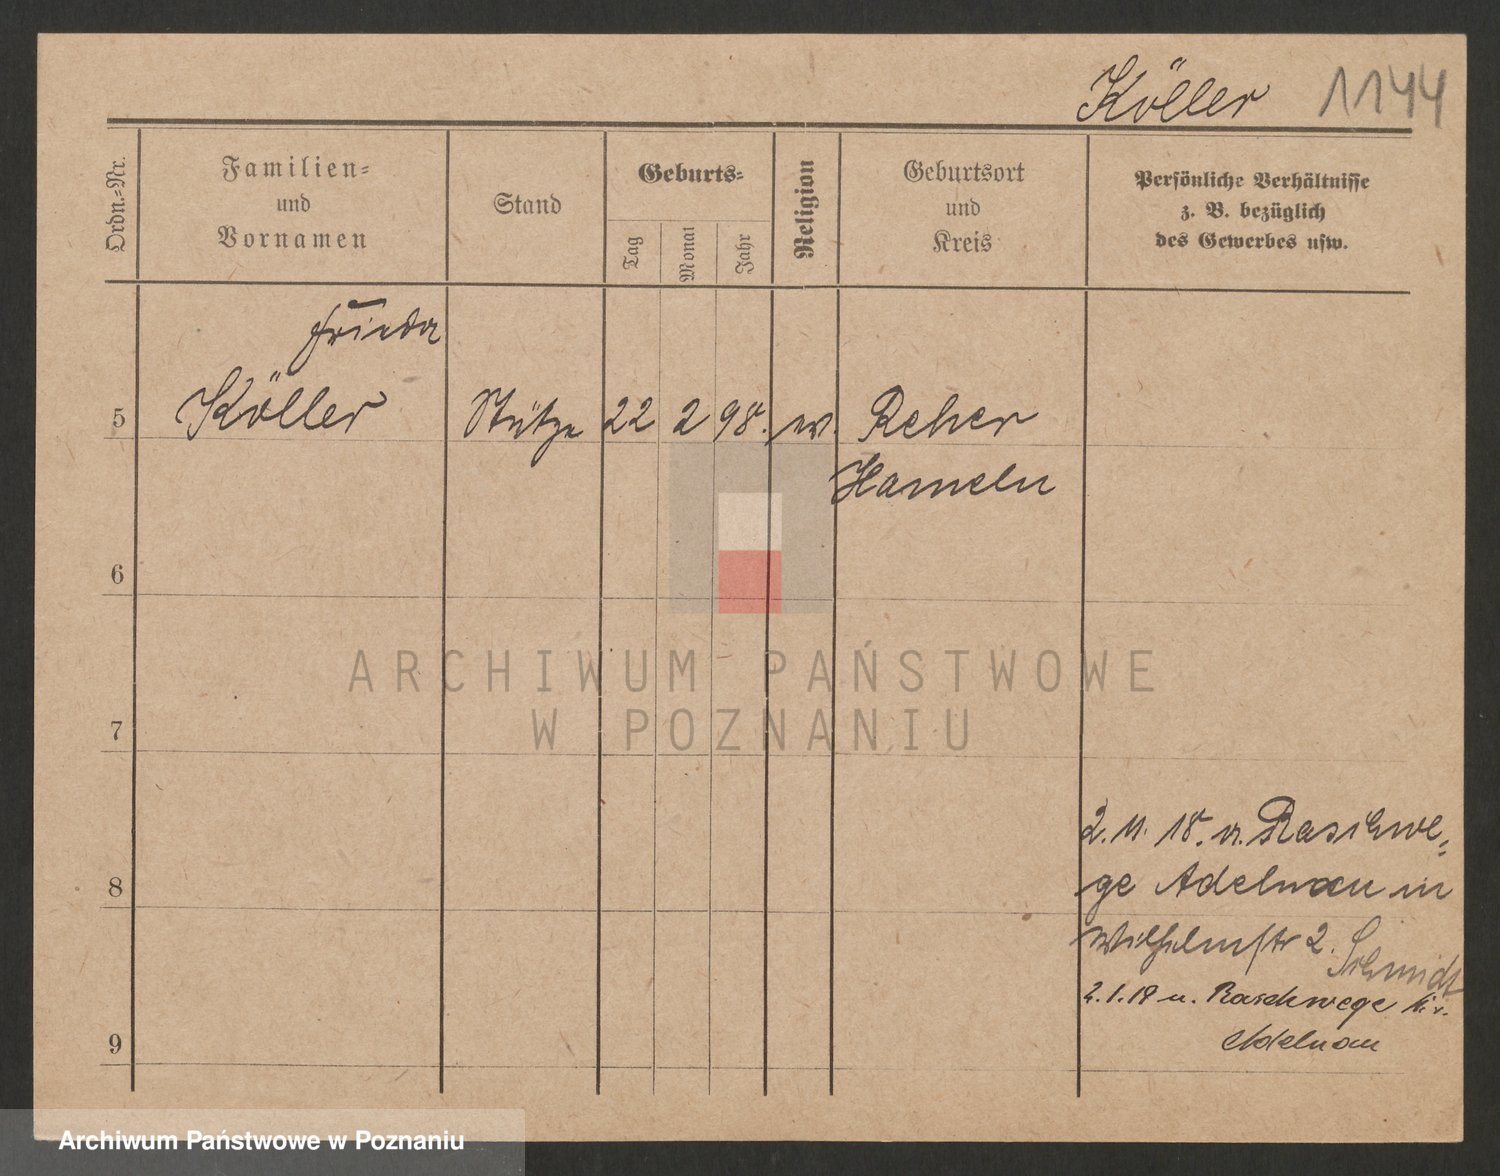 Köller 1144
Ordn.-Nr.
Familien-
und
Vornamen
Stand
Geburts-
Tag
Monat
Jahr
Religion
Geburtsort
und
Kreis
Persönliche Verhältnisse
z. B. bezüglich
des Gewerbes usw.
Frieda
5 Köller Stütze 22 2 98. w. Reher
Hameln
6
ARCHIWUM PAŃSTWOWE
W POZNANIU
7
2. 11. 18. Raschwe-
8 ge Adelnau in
Wilhelmstr 2. Schmidt
2. 1. 19 n. Raschwege
Adelnau
9
Archiwum Państwowe w Poznaniu